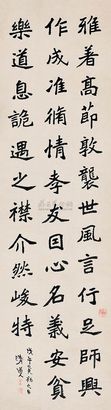 雅著高節敦襲世風言行足師興
作成准情孝友因心名義安貧
樂道息詭遇之襟介然峻特
清道人